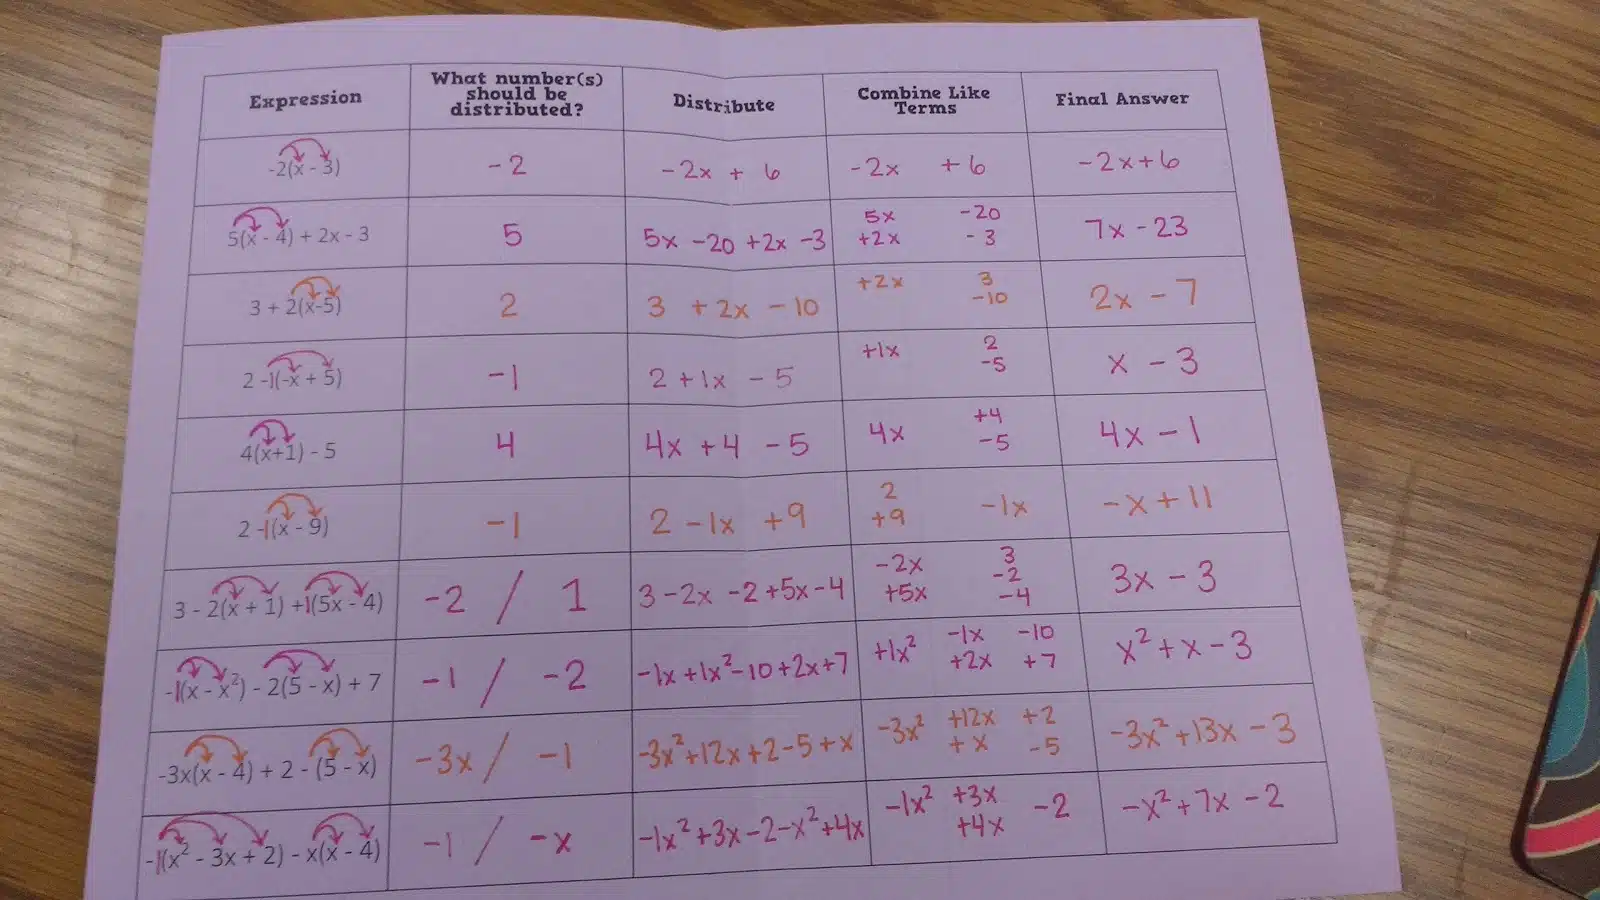 Expression What number(s) should be distributed? Distribute Combine Like Terms Final Answer
-2(x - 3) -2 -2x + 6 -2x +6 -2x+6
5(x - 4) + 2x - 3 5 5x -20 +2x -3 5x +2x -20 -3 7x -23
3 + 2(x-5) 2 3 +2x -10 +2x 3 -10 2x -7
2 -1(-x + 5) -1 2 +1x -5 +1x 2 -5 x -3
4(x+1) - 5 4 4x +4 -5 4x +4 -5 4x -1
2 -1(x - 9) -1 2 -1x +9 2 +9 -1x -x +11
3 - 2(x + 1) +1(5x - 4) -2 / 1 3 -2x -2 +5x -4 -2x +5x 3 -2 -4 3x -3
-1(x - x²) - 2(5 - x) + 7 -1 / -2 -1x +1x² -10 +2x +7 +1x² -1x +2x -10 +7 x² + x - 3
-3x(x - 4) + 2 - (5 - x) -3x / -1 -3x² +12x +2 -5 +x -3x² +12x + x +2 -5 -3x² +13x -3
-1(x² - 3x + 2) - x(x - 4) -1 / -x -1x² +3x -2 -x² +4x -1x² +3x +4x -2 -x² +7x -2